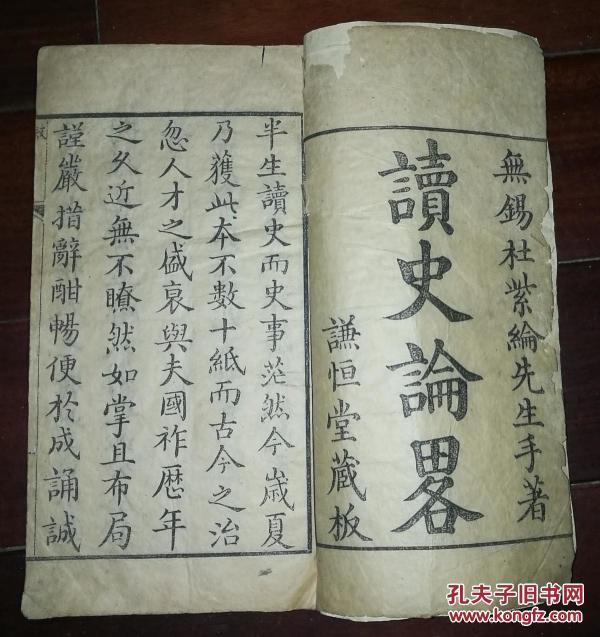 無錫杜紫綸先生手著
讀史論畧
謙恒堂藏板
半生讀史而史事茫然今歲夏
乃獲此本不數十紙而古今之治
忽人才之盛衰與夫國祚歷年
之久近無不瞭然如掌且布局
謹嚴措辭酣暢便於成誦誠
孔夫子旧书网
www.kongfz.com